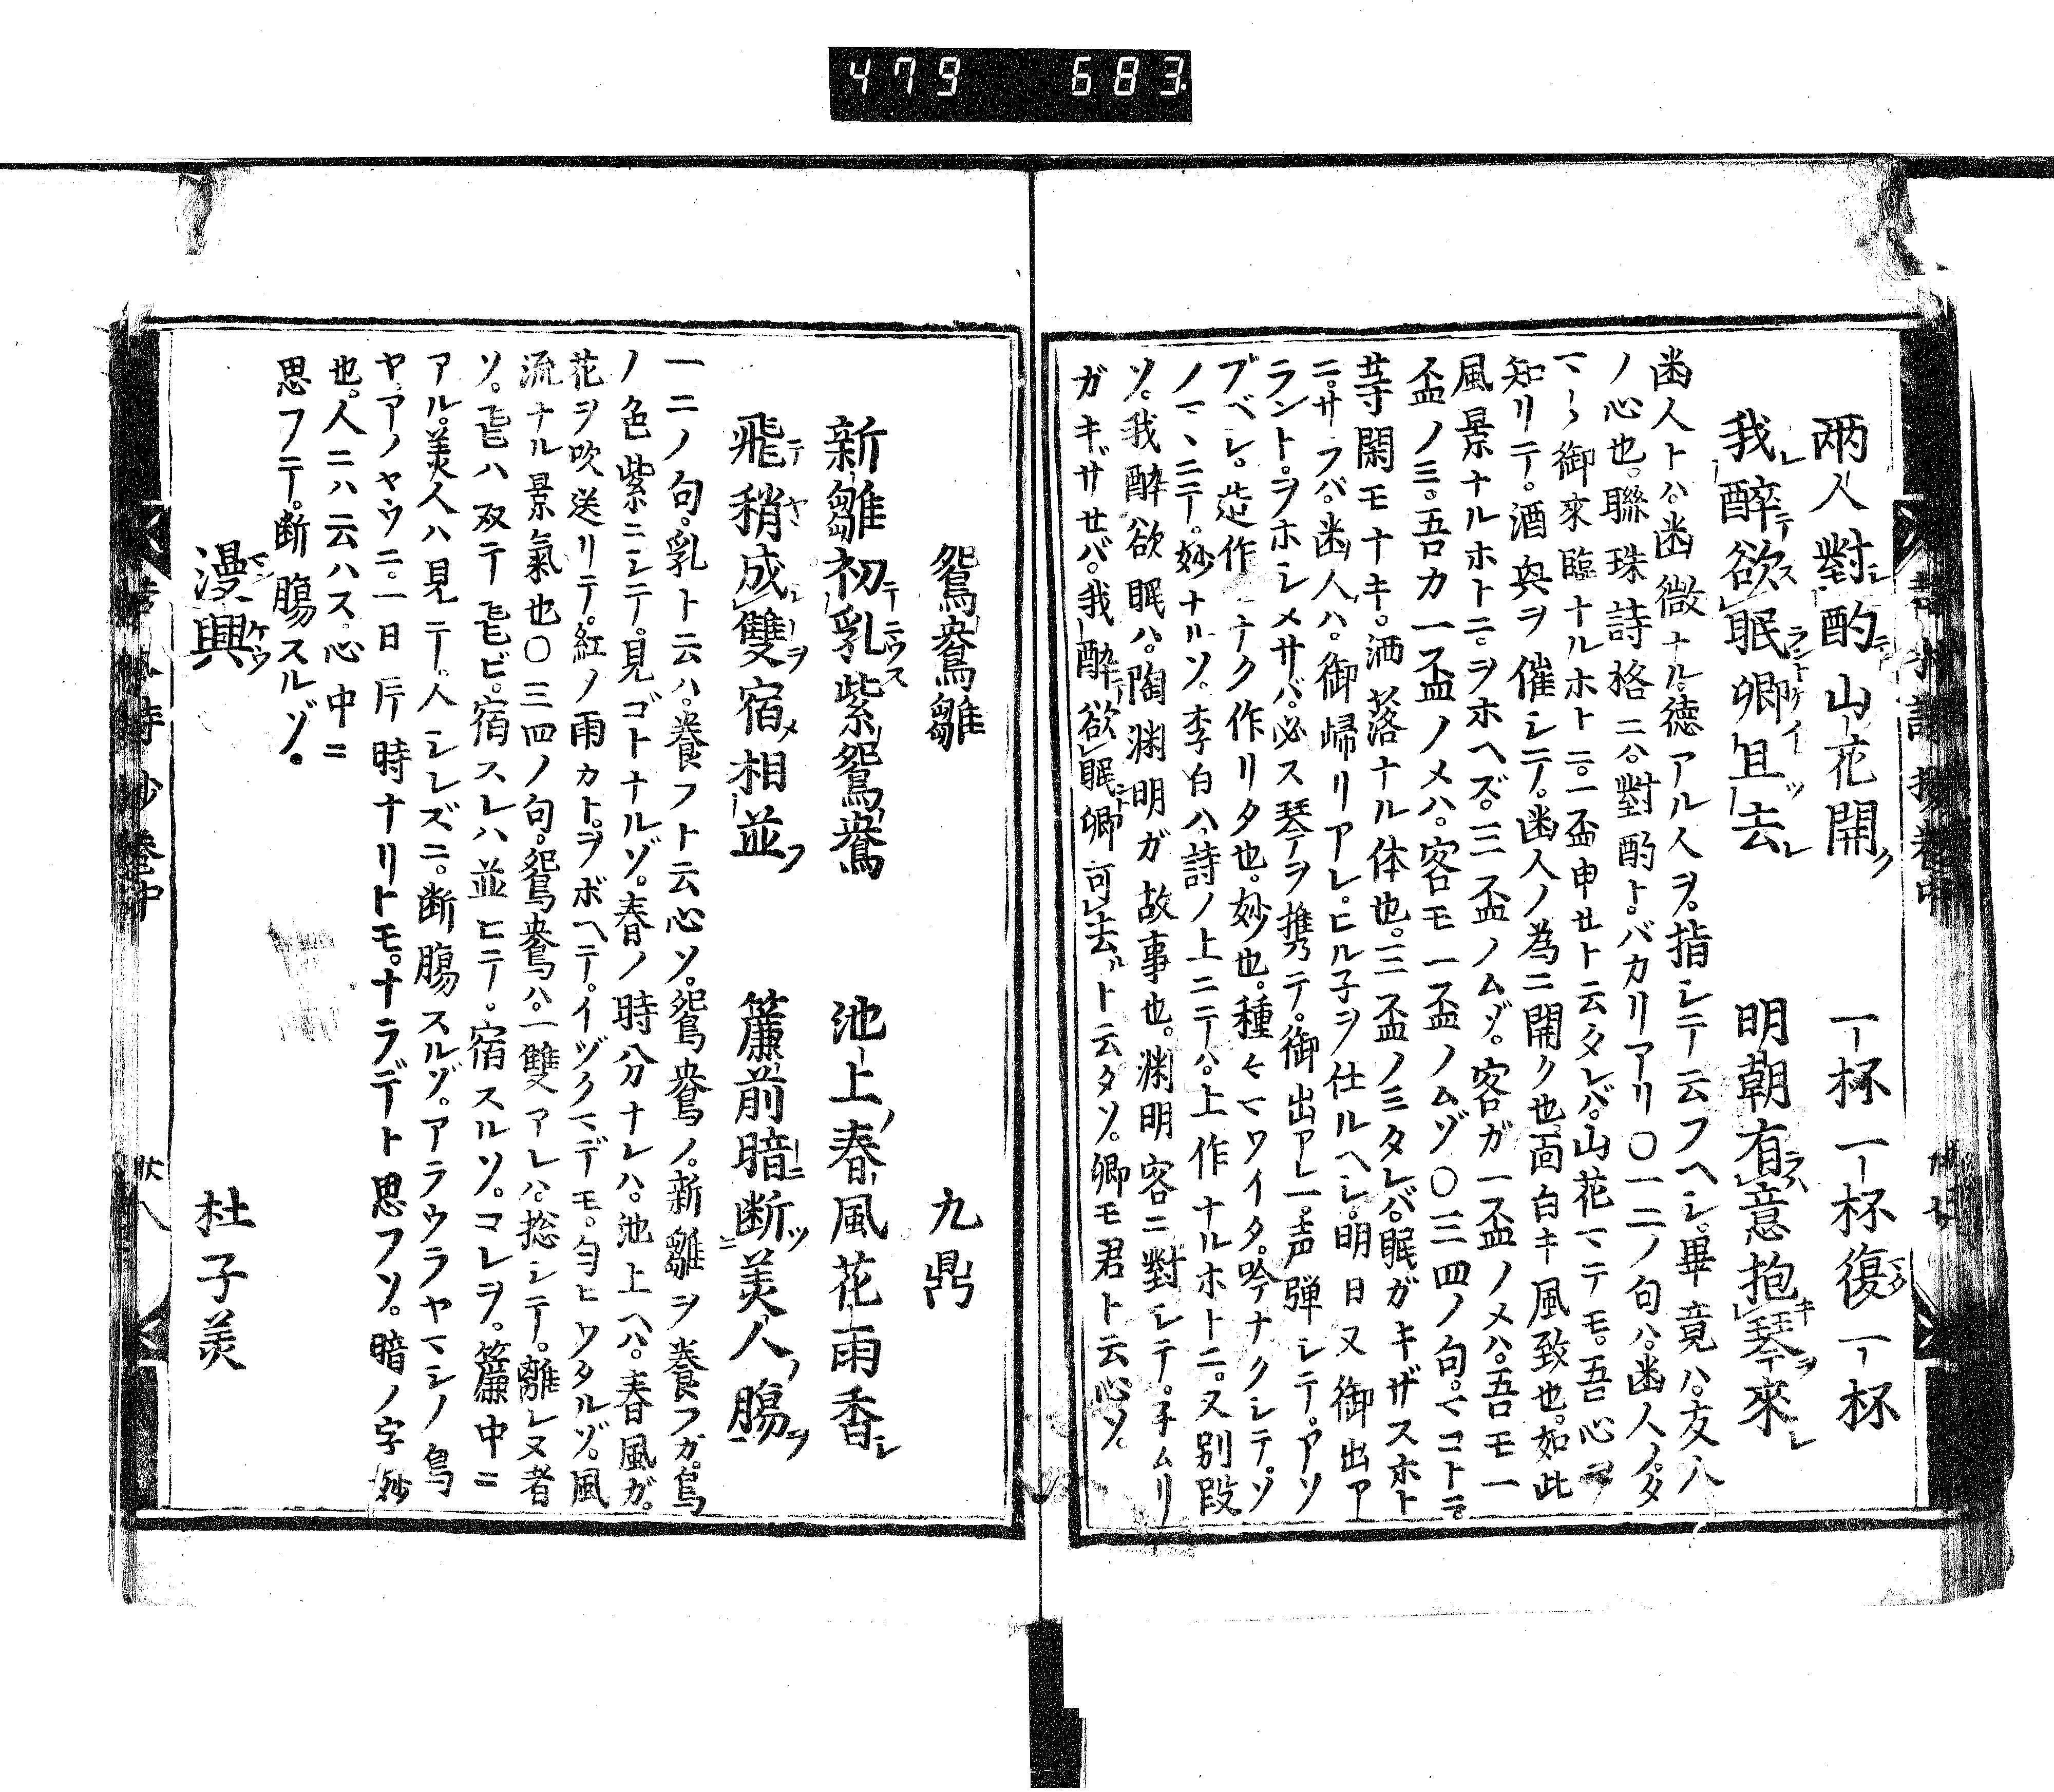 479 683
両人對酌山花開 一杯一杯復一杯
我醉欲眠卿且去 明朝有意抱琴來
幽人トハ。幽微ナル。徳アル人ヲ。指シテ云フヘシ。畢竟ハ。友人
ノ心也。聯珠詩格ニハ。對酌トバカリアリ〇一二ノ句ハ。幽人ノ。タ
マ〻御來臨ナルホトニ。一盃申サト云タレバ。山花マテモ。吾心ヲ
知リテ。酒興ヲ催シテ。幽人ノ為ニ開ク也。面白キ風致也。如此
風景ナルホトニ。ヲホヘズ。三盃ノムゾ。客ガ一盃ノメハ。吾モ一
盃ノミ。吾カ一盃ノメハ。客モ一盃ノムゾ〇三四ノ句。マコトニ。
等閑モナキ。洒落ナル体也。三盃ノミタレバ。眠ガキザスホト
ニ。サラバ。幽人ハ。御帰リアレ。ヒル子ヲ仕ルヘシ。明日又御出ア
ラント。ヲホシメサバ。必ス琴ヲ携テ。御出アレ。一声弾シテ。アソ
ブベシ。造作ナク作リタ也。妙也。種々マワイタ。吟ナクシテ。ソ
ノマヽニテ。妙ナルソ。李白ハ。詩ノ上ニテハ。上作ナルホトニ。又別段
ソ。我醉欲眠ハ。陶渊明ガ故事也。渊明客ニ對シテ。子ムリ
ガキザサセバ。我醉欲眠卿可去ト云タソ。卿モ君ト云心ソ。
鴛鴦雛 九鼎
新雛初乳紫鴛鴦 池上春風花雨香
飛稍成雙宿相並 簾前暗断美人膓
一二ノ句。乳ト云ハ。養フト云心ソ。鴛鴦ノ。新雛ヲ養フガ。鳥
ノ色紫ニシテ。見ゴトナルゾ。春ノ時分ナレハ。池上ヘハ。春風ガ。
花ヲ吹送リテ。紅ノ雨カト。ヲボヘテ。イヅクマデモ。匂ヒワタルゾ。風
流ナル景氣也〇三四ノ句。鴛鴦ハ。一雙アレハ。捴シテ。離レヌ者
ソ。飛ハ双テ飛ビ。宿スレハ並ヒテ。宿スルソ。コレヲ。簾中ニ
アル。美人ハ見テ。人シレズニ。断膓スルゾ。アラウラヤマシノ鳥
ヤ。アノヤウニ。一日片時ナリトモ。ナラデト思フソ。暗ノ字妙
也。人ニハ云ハス。心中ニ
思フテ。断膓スルゾ。
漫興 杜子美